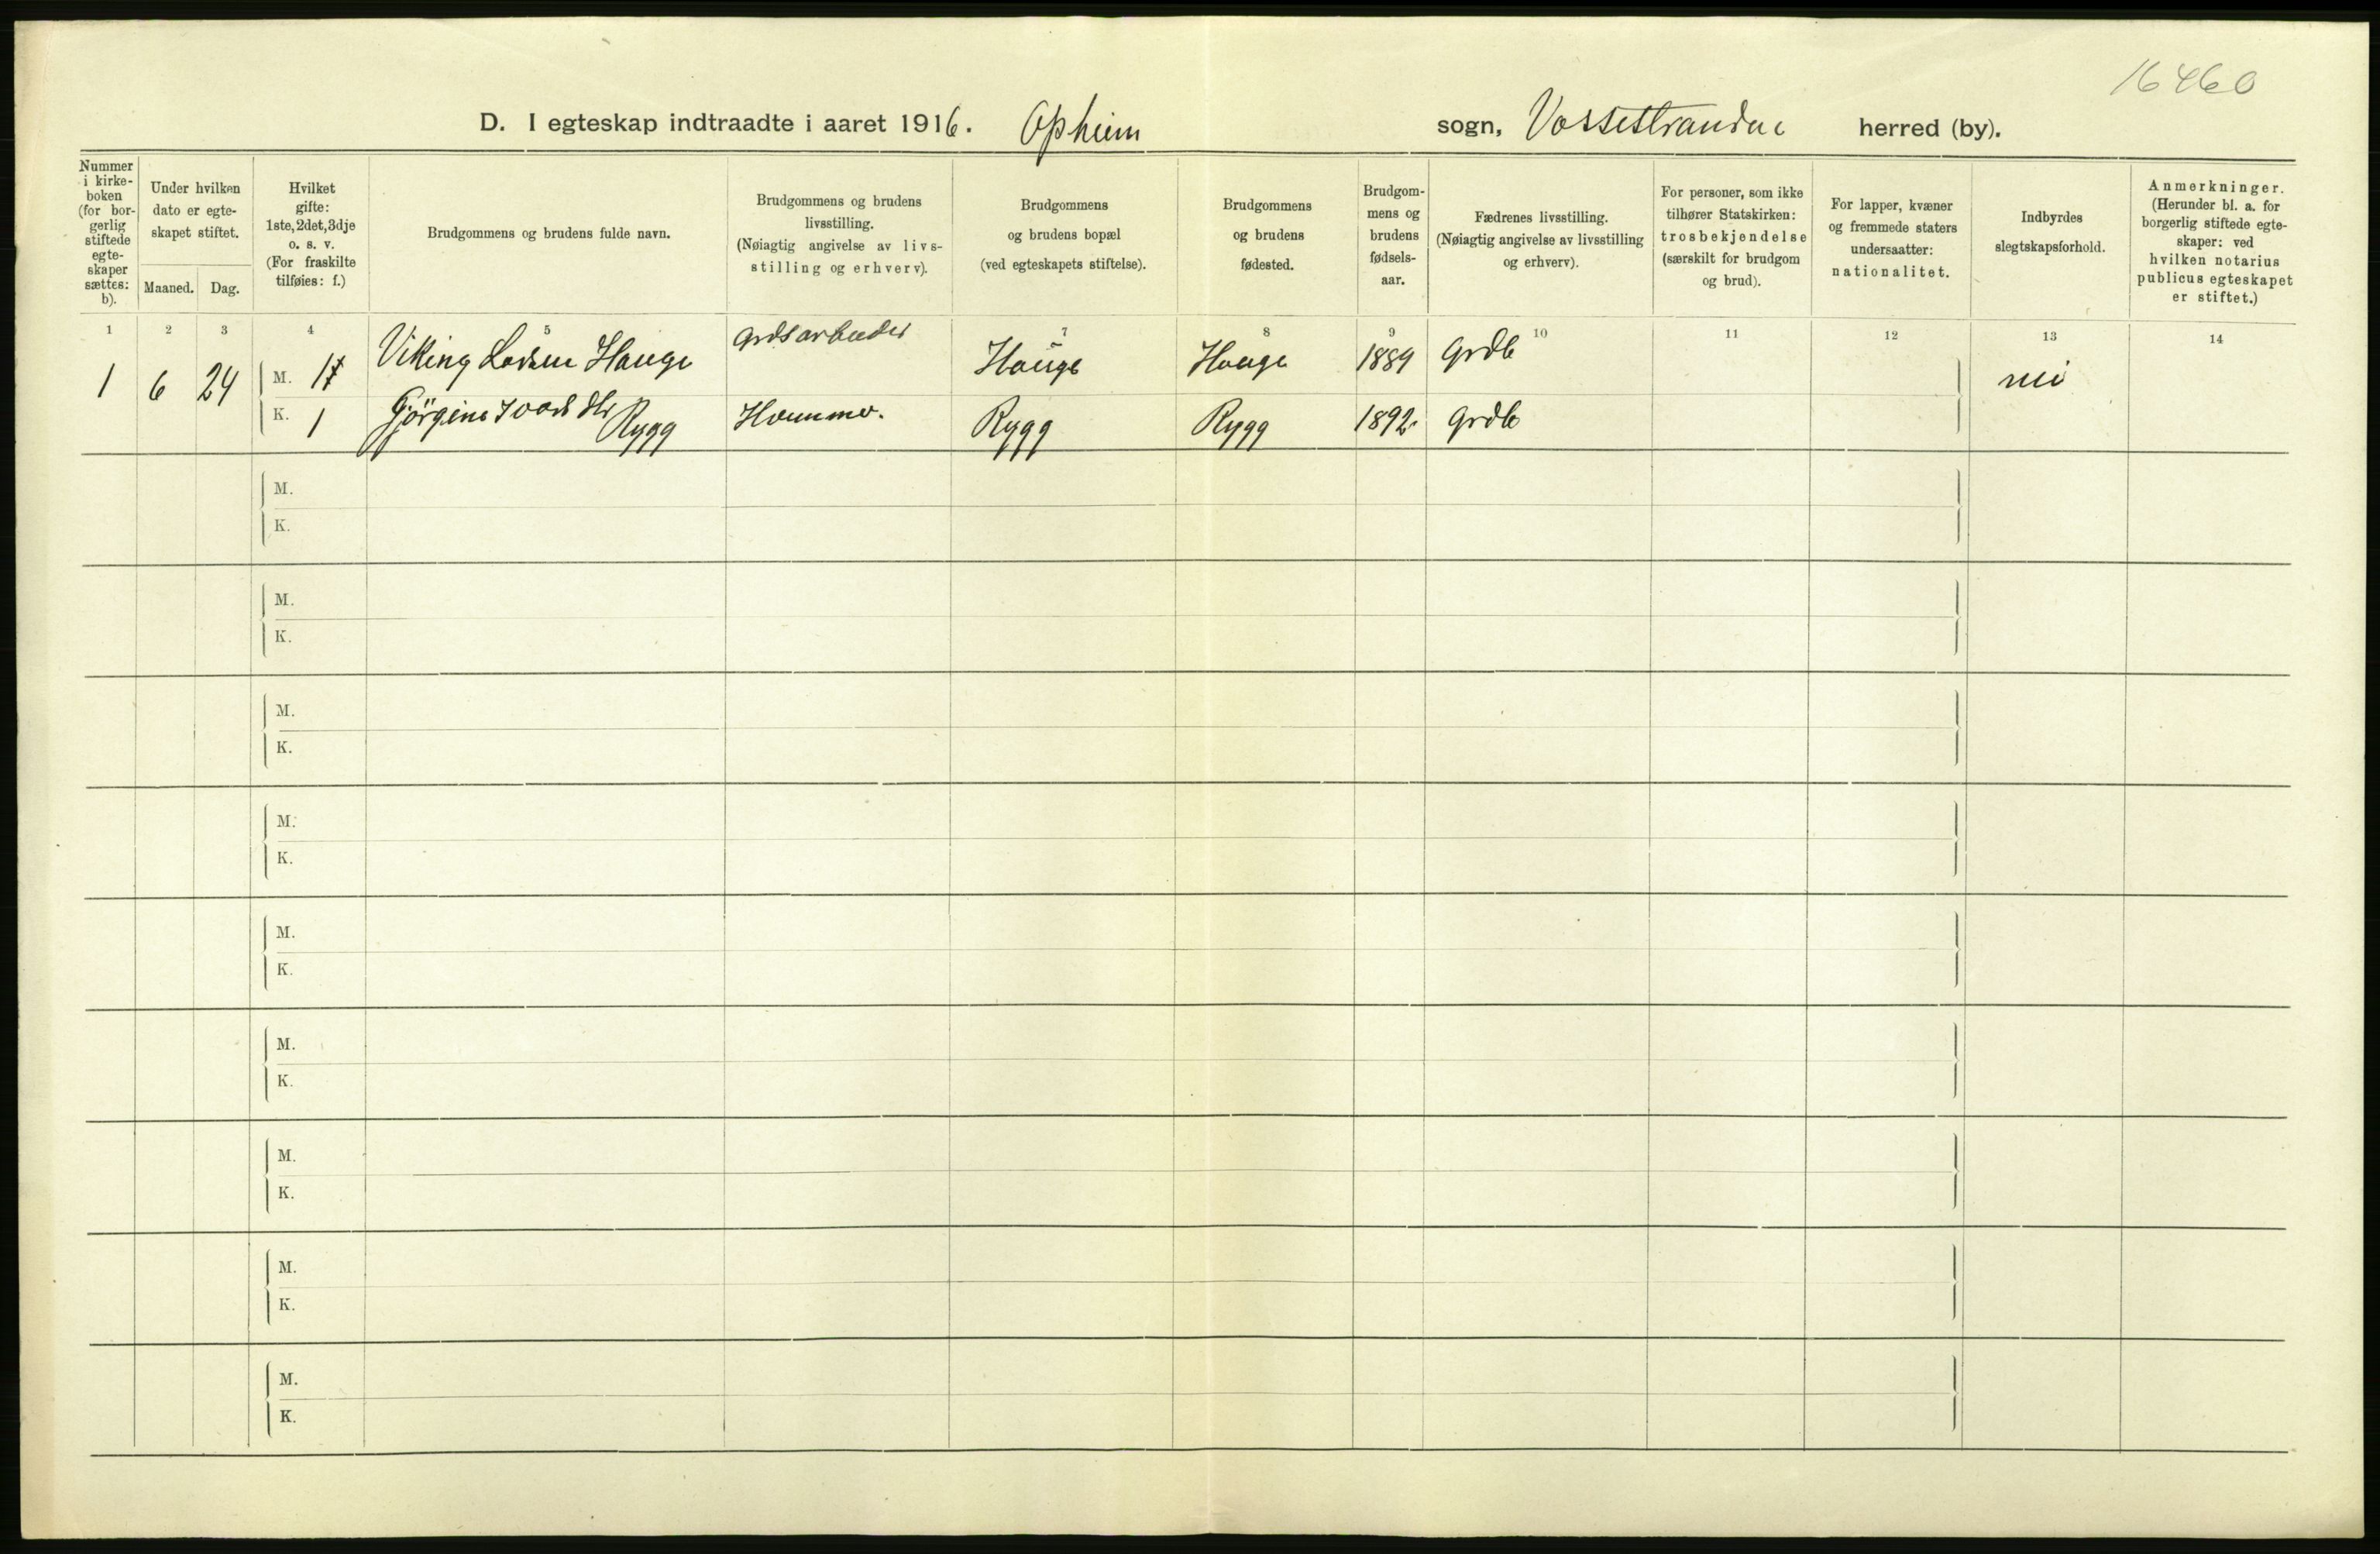 16460
D. I egteskap indtraadte i aaret 1916. Opheim sogn, Vossestranden herred (by).
Nummer
i kirke-
boken
(for bor-
gerlig
stiftede
egte-
skaper
sættes:
b).
Under hvilken
dato er egte-
skapet stiftet.
Maaned. Dag.
Hvilket
gifte:
1ste, 2det, 3dje
o. s. v.
(For fraskilte
tilføies: f.)
Brudgommens og brudens fulde navn.
Brudgommens og brudens
livsstilling.
(Nøiagtig angivelse av livs-
stilling og erhverv).
Brudgommens
og brudens bopæl
(ved egteskapets stiftelse).
Brudgommens
og brudens
fødested.
Brudgom-
mens og
brudens
fødsels-
aar.
Fædrenes livsstilling.
(Nøiagtig angivelse av livsstilling
og erhverv).
For personer, som ikke
tilhører Statskirken:
trosbekjendelse
(særskilt for brudgom
og brud).
For lapper, kvæner
og fremmede staters
undersaatter:
nationalitet.
Indbyrdes
slegtskapsforhold.
Anmerkninger.
(Herunder bl. a. for
borgerlig stiftede egte-
skaper: ved
hvilken notarius
publicus egteskapet
er stiftet.)
1 2 3 4 5 7 8 9 10 11 12 13 14
1 6 24 M. 1 Viking Larsen Hauge Grdsarbeider Hauge Hauge 1889 Grdb nei
K. 1 Görgine Ivars dtr Rygg Hemme. Rygg Rygg 1892. Grdb
M.
K.
M.
K.
M.
K.
M.
K.
M.
K.
M.
K.
M.
K.
M.
K.
M.
K.